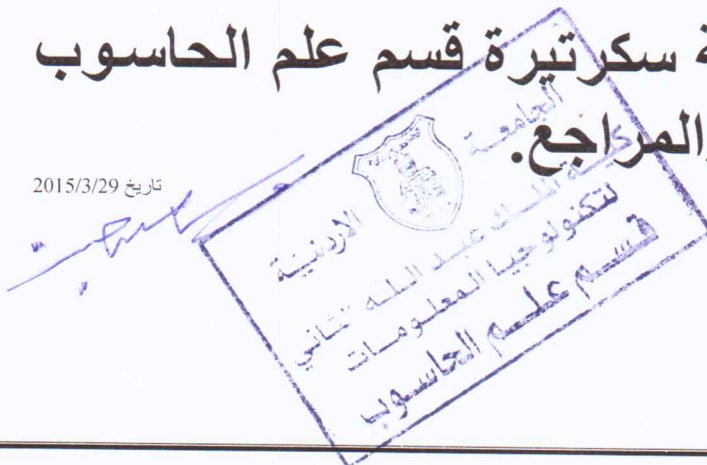 ة سكرتيرة قسم علم الحاسوب
المراجع.
تاريخ 2015/3/29
الجامعة الاردنية
كلية الملك عبد الله الثاني
لتكنولوجيا المعلومات
قسم علم الحاسوب